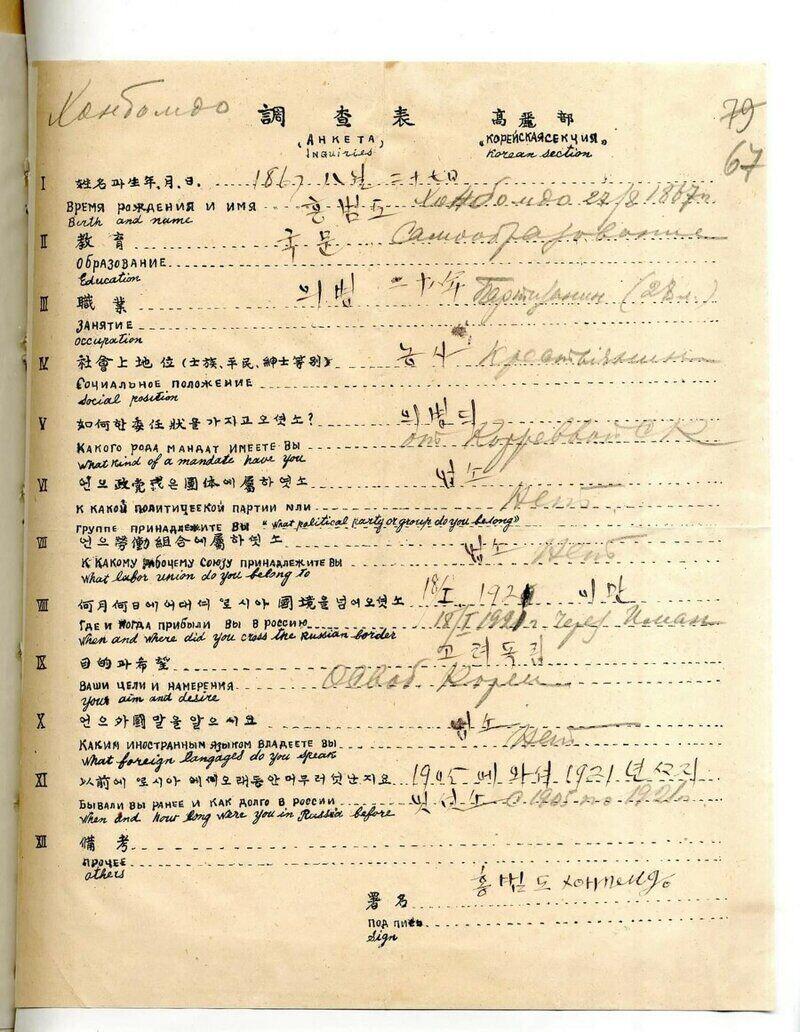 Хонбомдо
調 查 表 高麗部
79
„АНКЕТА„ „КОРЕЙСКАЯ СЕКЦИЯ„
Inquiries Korean section
67
I 姓名과生年、月、日. 1867 八월 二十七日
ВРЕМЯ РОЖДЕНИЯ И ИМЯ 홍범도 Хонбомдо 27/8 1867г
Birth and name
II 教育 국문 Самообразование
ОБРАЗОВАНИЕ
Education
III 職業 의병 二十八年 Партизанин (28 л.)
ЗАНЯТИЕ
occupation
IV 社會上地位(士族、平民、紳士等別) 농사 Крестьянин
СОЦИАЛЬНОЕ ПОЛОЖЕНИЕ
social position
V 如何한委任狀을가지고오엿소? 의병듸
КАКОГО РОДА МАНДАТ ИМЕЕТЕ ВЫ от
What kind of a mandate have you
VI 언으政党或은團体에屬하엿소 업소
К КАКОЙ ПОЛИТИЧЕСКОЙ ПАРТИИ ИЛИ Нет
ГРУППЕ ПРИНАДЛЕЖИТЕ ВЫ "What political party or group do you belong"
VII 언으勞働組合에屬하엿소 업소
К КАКОМУ РАБОЧЕМУ СОЮЗУ ПРИНАДЛЕЖИТЕ ВЫ Нет
What labor union do you belong to
VIII 何月何日에어대셔로시아國境을넘어오셧소 18/I 1921 이만
ГДЕ И КОГДА ПРИБЫЛИ ВЫ В РОССИЮ 18/I 1921 г. через Иман
When and where did you cross the Russian border
IX 目的과希望 고려독립
ВАШИ ЦЕЛИ И НАМЕРЕНИЯ Освоб Кореи
your aim and desire
X 언으外國말을알으시요 업소
КАКИМ ИНОСТРАННЫМ ЯЗЫКОМ ВЛАДЕЕТЕ ВЫ Нет
What foreign langages do you speak
XI 以前에로시아에얘오래동안머무러엇난지요 1905에와셔 1921년
БЫВАЛИ ВЫ РАНЕЕ И КАК ДОЛГО В РОССИИ 잇섯소 с 1905 по 1921г
When and how long were you in Russia before
XII 備考
ПРОЧЕЕ
others
署名 홍범도
ПОДПИСЬ
Sign